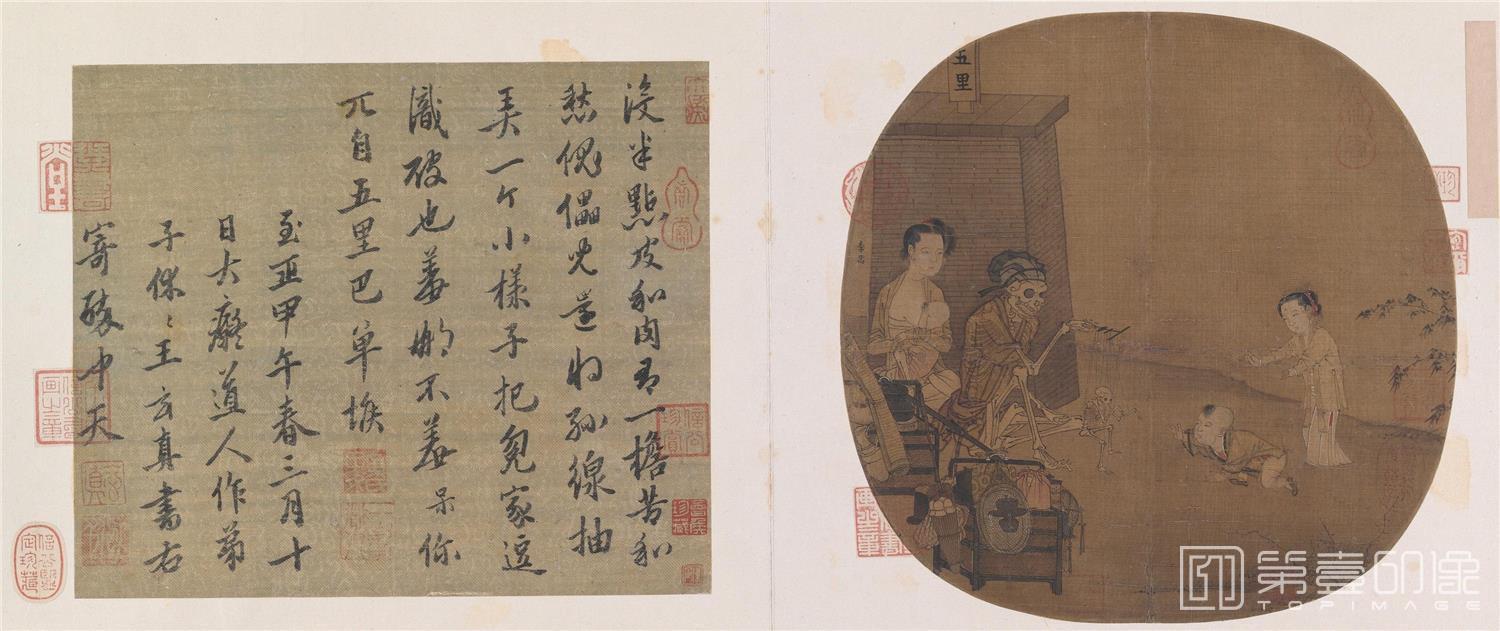 沒半點皮和肉有一擔苦和
愁傀儡兒還將絲線抽
弄一个小樣子把冤家逗
識破也羞那不羞呆你
兀自五里巴单堠
至正甲午春三月十
日大癡道人作弟
子休〻王玄真書右
寄醉中天
五里
李嵩
第壹印像
TOPIMAGE